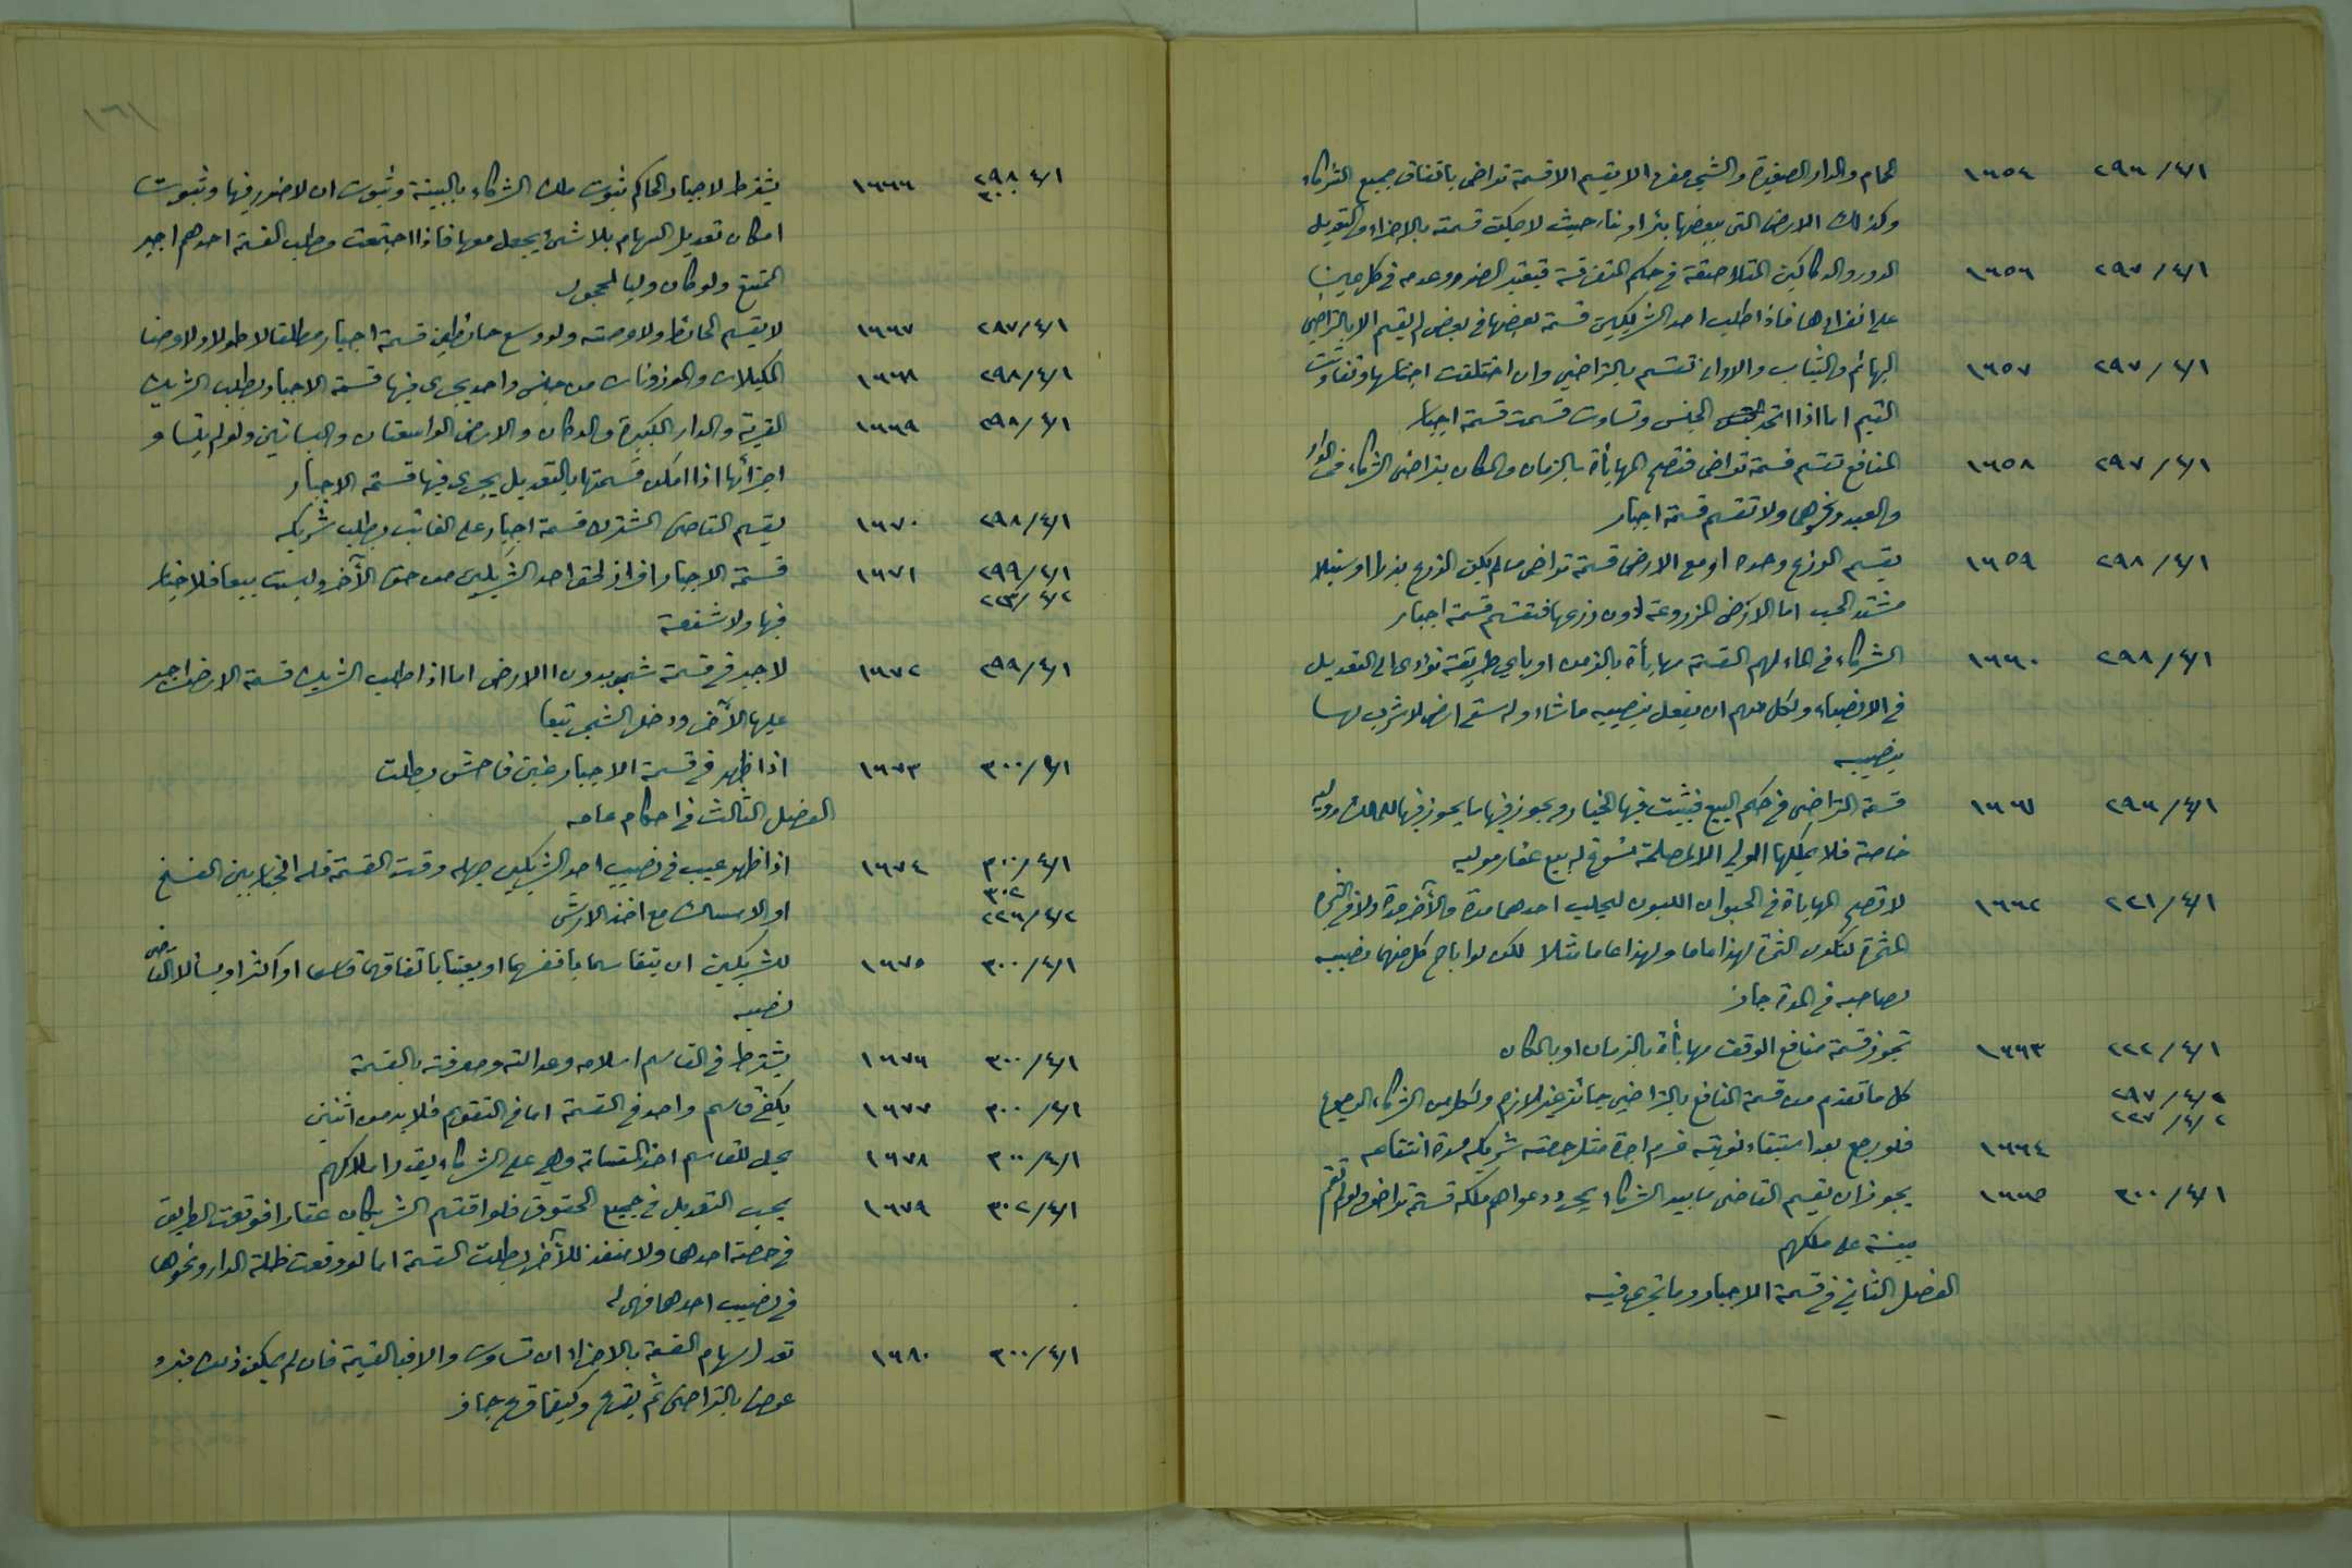 ٢٩٦/٤/١ ١٦٥٤ الحمام والدار الصغيرة والشجر مفردا لا يقسم الا قسمة تراضى باتفاق جميع الشركاء
وكذلك الارض التى ببعضها بئر او بناء حيث لا يمكن قسمته بالاجزاء والتعديل
٢٩٧/٤/١ ١٦٥٦ الدور والدكاكين المتلاصقة في حكم المتفرقة فيعتبر الضرر وعدمه في كل عين
على انفرادها فاذا طلب احد الشريكين قسمة بعضها في بعض لم يقسم الا بالتراضي
٢٩٧/٤/١ ١٦٥٧ البهائم والثياب والاوانى تقسم بالتراضي وان اختلفت اجناسها وتفاوتت
القيم اما اذا اتحد الجنس وتساوت قسمت قسمة اجبار
٢٩٧/٤/١ ١٦٥٨ المنافع تقسم قسمة تراضى فتصح المهايأة بالزمان والمكان بتراضى الشركاء في الدار
والعبد ونحوهما ولا تقسم قسمة اجبار
٢٩٨/٤/١ ١٦٥٩ يقسم الزرع وحده او مع الارض قسمة تراضى ما لم يكن الزرع بذرا او سنبلا
مشتد الحب اما الارض المزروعة دون زرعها فتقسم قسمة اجبار
٢٩٨/٤/١ ١٦٦٠ الشركاء في الماء لهم القسمة مهايأة بالزمن او باي طريقة تؤدى الى التعديل
في الانصباء ولكل منهم ان يفعل بنصيبه ما شاء وله سقى ارض لا شرب لها
بنصيبه
٢٩٦/٤/١ ١٦٦١ قسمة التراضى في حكم البيع فيثبت فيها الخيار ويجوز فيها ما يجوز فيها للمالك ووليه
خاصة فلا يملكها الولي الا لمصلحة تسوغ له بيع عقار موليه
٢٢١/٤/١ ١٦٦٢ لا تصح المهايأة في الحيوان اللبون ليحلب احدهما مدة والآخر مدة ولا في الشجرة
المثمرة لتكون الثمرة لهذا عاما ولهذا عاما مثلا لكن لو اباح كل منهما نصيبه
لصاحبه في المدة جاز
٢٢٢/٤/١ ١٦٦٣ تجوز قسمة منافع الوقف مهايأة بالزمان او بالمكان
٢٩٧/٤/٢ كل ما تقدم من قسمة المنافع بالتراضي جائز غير لازم ولكل من الشركاء الرجوع
٢٢٧/٤/٢
١٦٦٤ فلو رجع بعد استيفاء نوبته غرم اجرة مثل حصة شريكه مدة انتفاعه
٣٠٠/٤/١ ١٦٦٥ يجوز ان يقسم القاضى ما بيد الشركاء بمجرد دعواهم ملكه قسمة تراض ولو لم تقم
بينة على ملكهم
الفصل الثاني في قسمة الاجبار وما تجرى فيه
١٦١
٢٩٨/٤/١ ١٦٦٦ يشترط لاجبار الحاكم ثبوت ملك الشركاء بالبينة وثبوت ان لا ضرر فيها وثبوت
٣٠٠
امكان تعديل السهام بلا شئ يجعل معها فاذا اجتمعت وطلب القسمة احدهم اجبر
الممتنع ولو كان وليا لمحجور
٢٨٧/٤/١ ١٦٦٧ لا يقسم الحائط ولا عرصته ولو وسع حائطين قسمة اجبار مطلقا لا طولا ولا عرضا
٢٩٨/٤/١ ١٦٦٨ المكيلات والموزونات من جنس واحد يجرى فيها قسمة الاجبار بطلب الشريك
٢٩٨/٤/١ ١٦٦٩ القرية والدار الكبيرة والدكان والارض الواسعتان والبساتين ولو لم يتساو
اجزائها اذا امكن قسمتها بالتعديل يجرى فيها قسمة الاجبار
٢٩٨/٤/١ ١٦٧٠ يقسم القاضى المشترك قسمة اجبار على الغائب بطلب شريكه
٢٩٩/٤/١ ١٦٧١ قسمة الاجبار افراز لحق احد الشريكين من حق الآخر وليست بيعا فلا خيار
٢٢٣/٤/٢
فيها ولا شفعة
٢٩٩/٤/١ ١٦٧٢ لا جبر في قسمة شجر بدون الارض اما اذا طلب الشريك قسمة الارض اجبر
عليها الآخر ودخل الشجر تبعا
٣٠٠/٤/١ ١٦٧٣ اذا ظهر في قسمة الاجبار غبن فاحش بطلت
الفصل الثالث في احكام عامه
٣٠٠/٤/١ ١٦٧٤ اذا ظهر عيب في نصيب احد الشريكين جهله وقت القسمة فله الخيار بين الفسخ
٣٠٢
٢٢٦/٤/٢ او الامساك مع اخذ الارش
٣٠٠/٤/١ ١٦٧٥ للشريكين ان يتقاسما بانفسهما او يعينا باتفاقهما قاسما او اكثر او يسألا القاضى
نصبه
٣٠٠/٤/١ ١٦٧٦ يشترط في القاسم اسلامه وعدالته ومعرفته بالقسمة
٣٠٠/٤/١ ١٦٧٧ يكفي قاسم واحد في القسمة اما في التقويم فلا بد من اثنين
٣٠٠/٤/١ ١٦٧٨ يحل للقاسم اخذ القسامة وهي على الشركاء بقدر املاكهم
٣٠٢/٤/١ ١٦٧٩ يجب التعديل في جميع الحقوق فلو اقتسم الشريكان عقارا فوقعت الطريق
في حصة احدهما ولا منفذ للآخر بطلت القسمة اما لو وقعت ظلة الدار ونحوها
في نصيب احدهما فهى له
٣٠٠/٤/١ ١٦٨٠ تعدل سهام القسمة بالاجزاء ان تساوت والا فبالقيمة فان لم يمكن ذلك فبرد
عوض بالتراضى ثم يقرع وكيفما قرع جاز